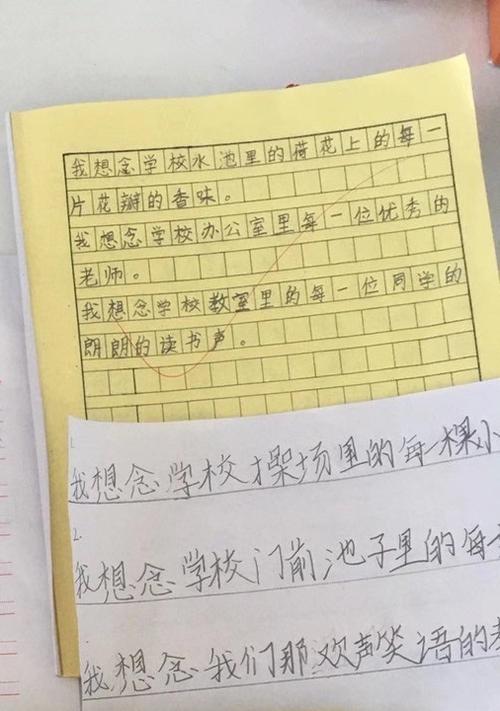 我想念学校水池里的荷花上的每一
片花瓣的香味。
我想念学校办公室里每一位优秀的
老师。
我想念学校教室里的每一位同学的
朗朗的读书声。
1.
我想念学校操场里的每一棵小
2.
我想念学校门前池子里的每一
我想念我们那欢声笑语的